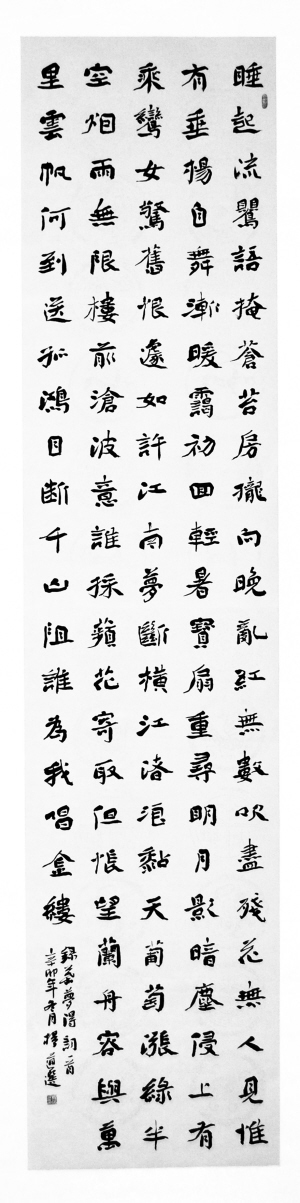 睡起流鸎語掩蒼苔房櫳向晚亂紅無數吹盡殘花無人見惟
有垂楊自舞漸暖靄初回輕暑寶扇重尋明月影暗塵侵上有
乘鸞女驚舊恨遽如許江南夢斷橫江渚浪黏天葡萄漲綠半
空烟雨無限樓前滄波意誰採蘋花寄取但悵望蘭舟容與萬
里雲帆何到送孤鴻目斷千山阻誰為我唱金縷
錄葉夢得詞一首
辛卯年冬月